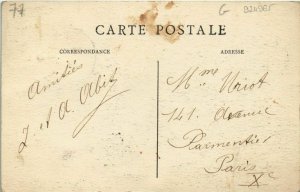 77
G 924985
CARTE POSTALE
CORRESPONDANCE
ADRESSE
Amitiés
J et A. Abit
Mme Uriot
141. Avenue
Parmentier
Paris
Xe